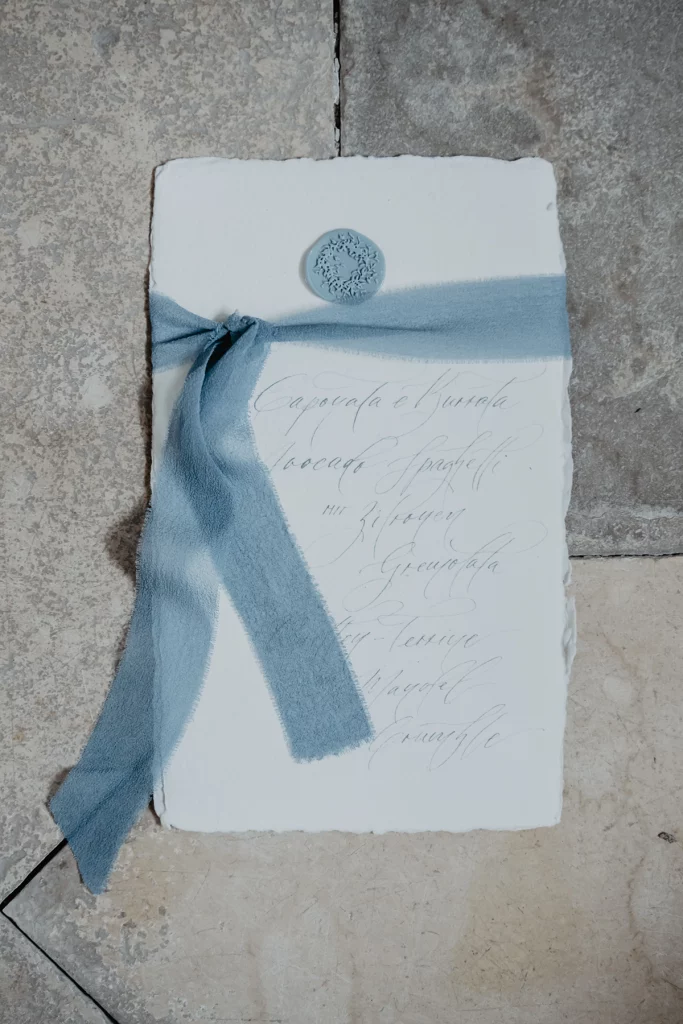 Caponata e Burrata
Avocado Spaghetti
mit Zitronen
Gremolata
Terrine
Mandel
Crumble